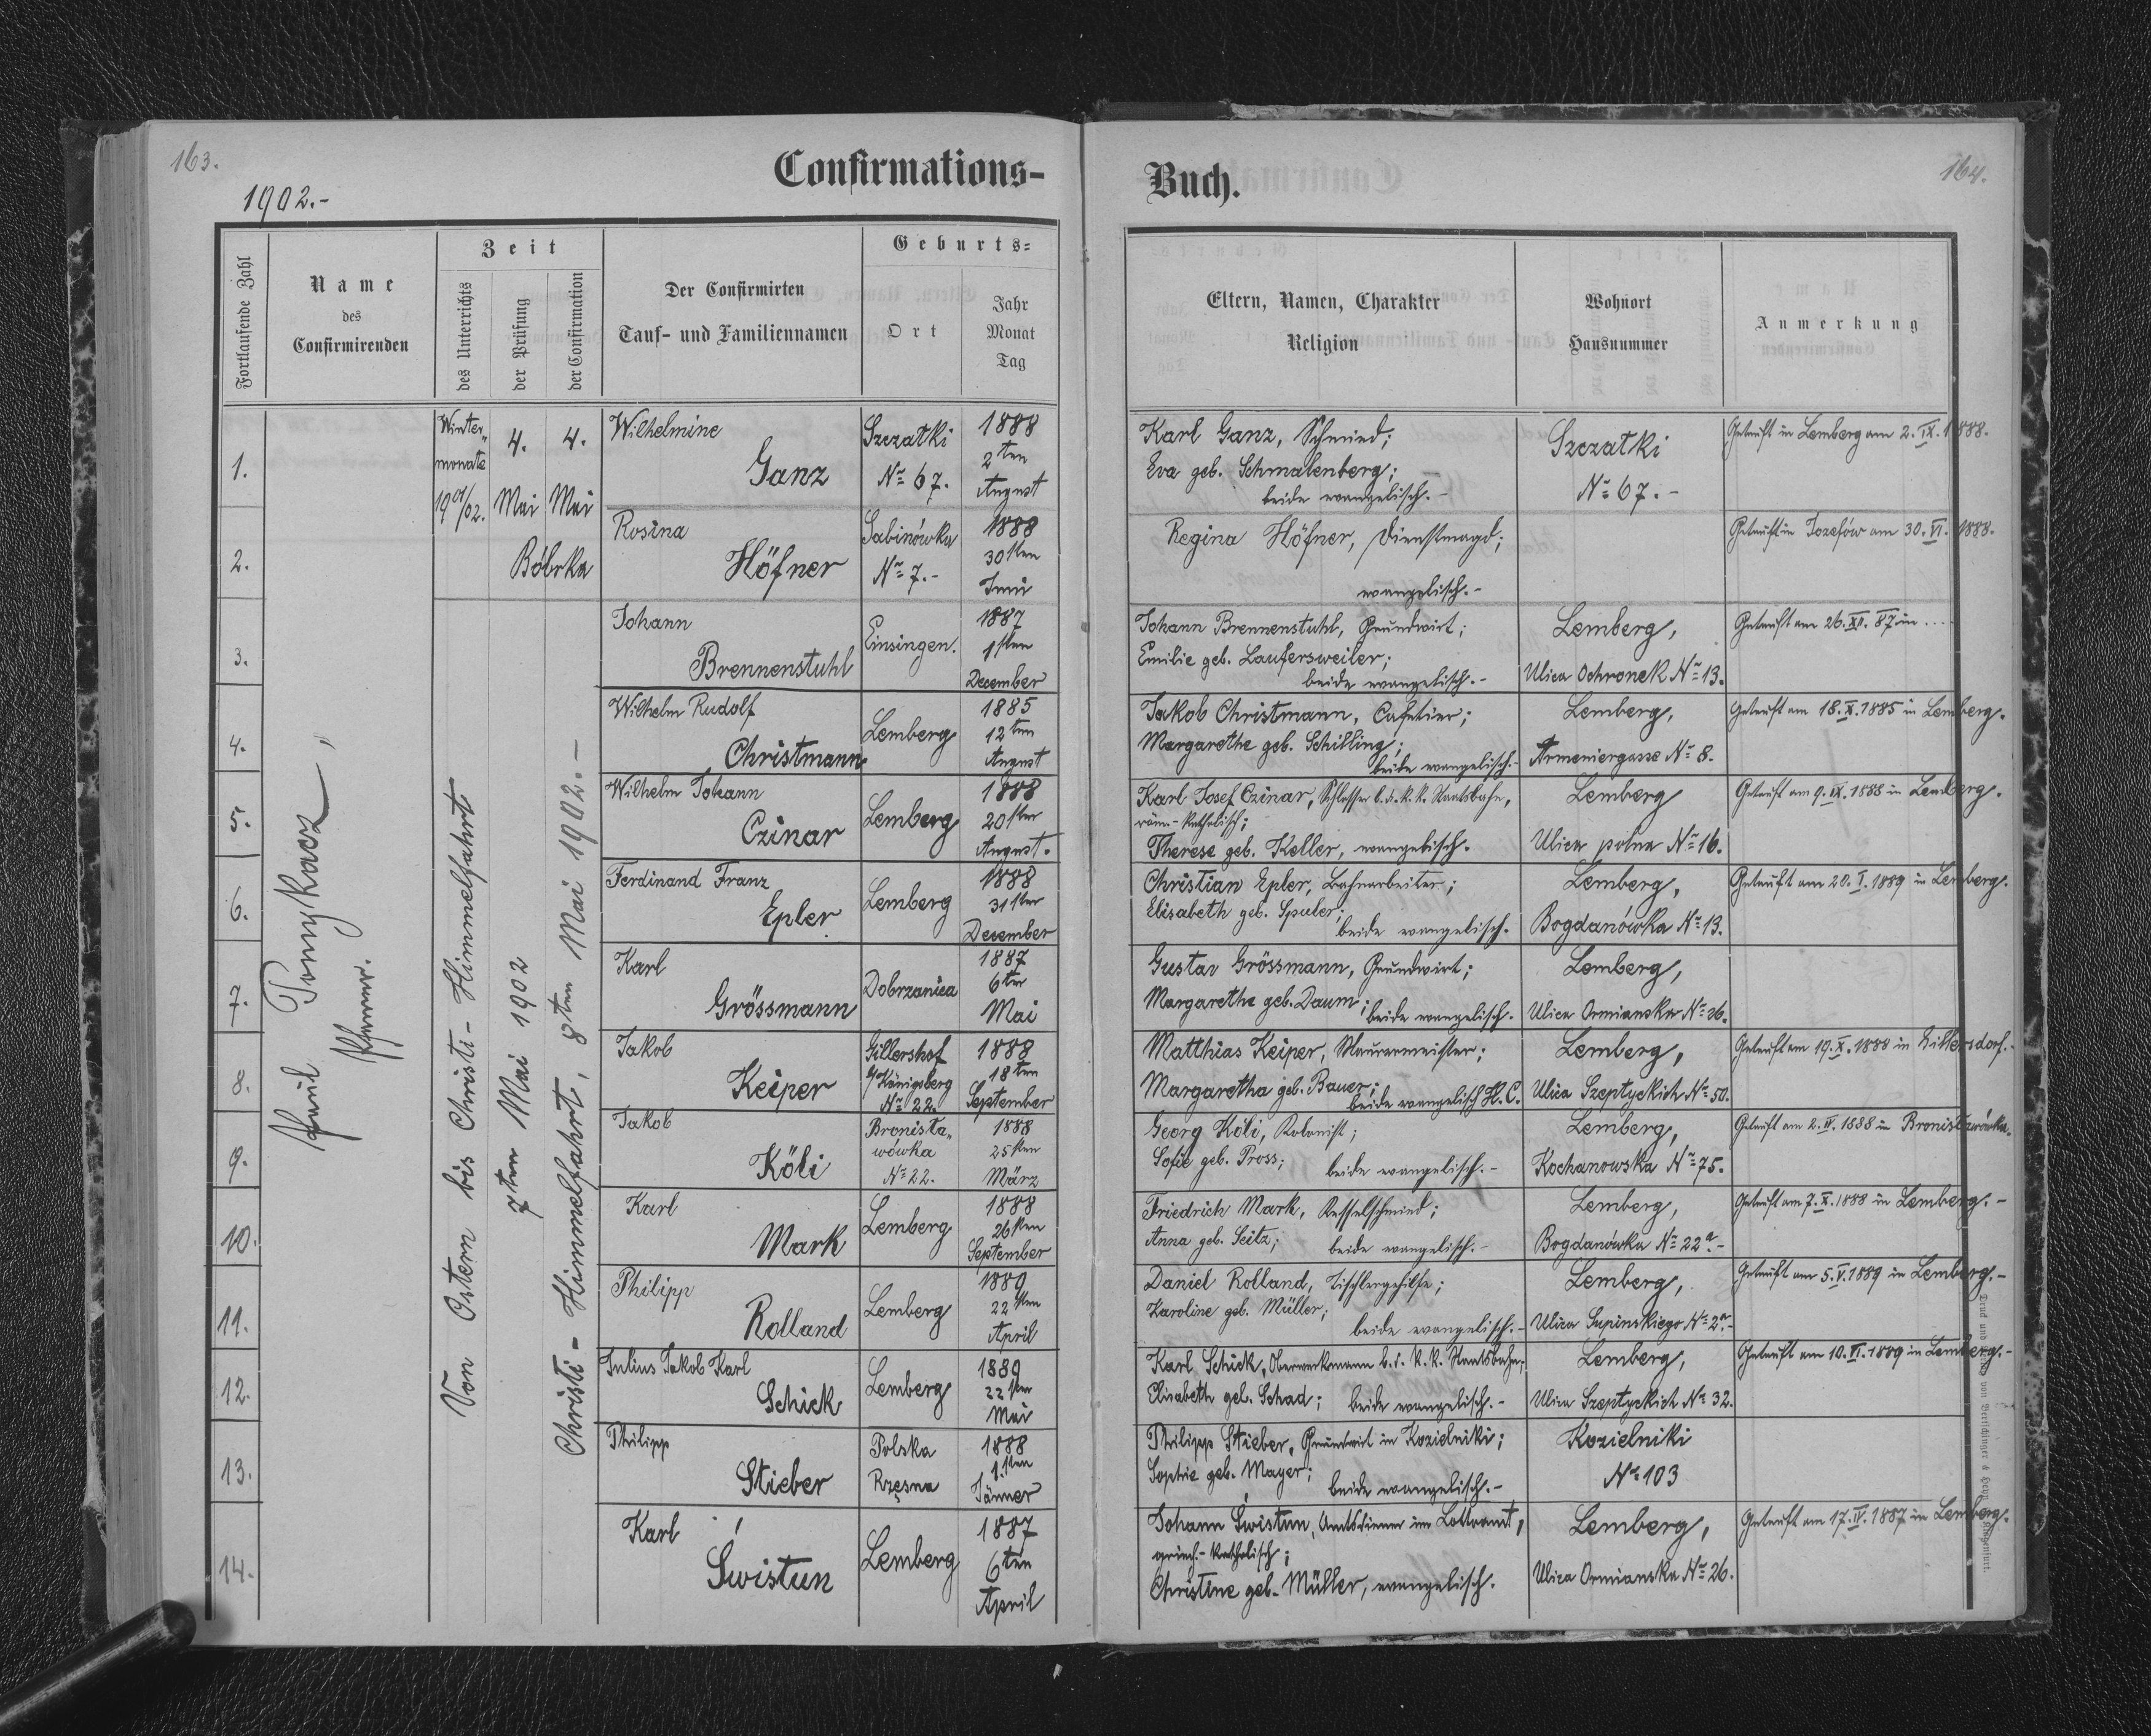 163.
1902.-
Confirmations-
Fortlaufende Zahl
Name
des
Confirmirenden
Zeit
des Unterrichts
der Prüfung
der Confirmation
Der Confirmirten
Tauf- und Familiennamen
Geburts-
Ort
Jahr
Monat
Tag
Paul Tomykacz,
Pfarrer.
Winter„
monate
190 1/02.
4.
Mai
4.
Mai
Bóbrka
Von Ostern bis Christi-Himmelfahrt
7ten Mai 1902
Christi-Himmelfahrt, 8ten Mai 1902.-
1.
Wilhelmine
Ganz
Szczatki
No 67.
1888
2ten
August
2.
Rosina
Höfner
Sabinówka
No 7.-
1888
30sten
Juni
3.
Johann
Brennenstuhl
Einsingen.
1887
1sten
December
4.
Wilhelm Rudolf
Christmann
Lemberg
1885
12ten
August
5.
Wilhelm Johann
Czinar
Lemberg
1888
20sten
August.
6.
Ferdinand Franz
Epler
Lemberg
1888
31sten
December
7.
Karl
Grössmann
Dobrzanica
1887
6ten
Mai
8.
Jakob
Keiper
Gillershof
b/Königsberg
No 22.
1888
18ten
September
9.
Jakob
Köli
Bronisła„
wówka
No 22.
1888
25sten
März
10.
Karl
Mark
Lemberg
1888
26sten
September
11.
Philipp
Rolland
Lemberg
1889
22sten
April
12.
Julius Jakob Karl
Schick
Lemberg
1889
22sten
Mai
13.
Philipp
Stieber
Polska
Rzęsna
1888
1.sten
Jänner
14.
Karl
Świstun
Lemberg
1887
6ten
April
164.
Buch.
Eltern, Namen, Charakter
Religion
Wohnort
Hausnummer
Anmerkung
Karl Ganz, Schmied;
Eva geb. Schmalenberg;
beide evangelisch.-
Szczatki
No 67.-
Getauft in Lemberg am 2. IX. 1888.
Regina Höfner, Dienstmagd;
evangelisch.-
Getauft in Josefów am 30. VI. 1888.
Johann Brennenstuhl, Grundwirt;
Emilie geb. Laufersweiler;
beide evangelisch.-
Lemberg,
Ulica Ochronek No 13.
Getauft am 26. XII. 87 in ....
Jakob Christmann, Cafetier;
Margarethe geb. Schilling;
beide evangelisch.-
Lemberg,
Armeniergasse No 8.
Getauft am 18. X. 1885 in Lemberg.
Karl Josef Czinar, Schlosser b. d. k. k. Staatsbahn,
röm.-katholisch;
Therese geb. Keller, evangelisch.
Lemberg
Ulica polna No 16.
Getauft am 9. IX. 1888 in Lemberg.
Christian Epler, Bahnarbeiter;
Elisabeth geb. Spuler;
beide evangelisch.
Lemberg,
Bogdanówka No 13.
Getauft am 20. I. 1889 in Lemberg.
Gustav Grössmann, Grundwirt;
Margaretha geb. Daum;
beide evangelisch.
Lemberg,
Ulica Ormianska No 26.
Matthias Keiper, Maurermeister;
Margaretha geb. Bauer;
beide evangelisch H. C.
Lemberg,
Ulica Szeptyckich No 50.
Getauft am 19. X. 1888 in
Georg Köli, Kolonist;
Sofie geb. Pross;
beide evangelisch.-
Lemberg,
Kochanowska No 75.
Getauft am 2. IV. 1888 in Bronisławówka.
Friedrich Mark, Kesselschmied;
Anna geb. Seitz;
beide evangelisch.-
Lemberg,
Bogdanówka No 22a.-
Getauft am 7. X. 1888 in Lemberg.-
Daniel Rolland, Tischlergehilfe;
Karoline geb. Müller;
beide evangelisch.-
Lemberg,
Ulica Supinskiego No 2a.-
Getauft am 5. V. 1889 in Lemberg.-
Karl Schick, Oberwerkmann b. d. k. k. Staatsbahn,
Elisabeth geb. Schad;
beide evangelisch.-
Lemberg,
Ulica Szeptyckich No 32.
Getauft am 10. VI. 1889 in Lemberg.-
Philipp Stieber, Grundwirt in Kozielniki;
Sophie geb. Mayer;
beide evangelisch.-
Kozielniki
No 103
Johann Świstun, Amtsdiener im Lottoamt,
griech.-katholisch;
Christine geb. Müller, evangelisch.
Lemberg,
Ulica Ormianska No 26.
Getauft am 17. IV. 1887 in Lemberg.